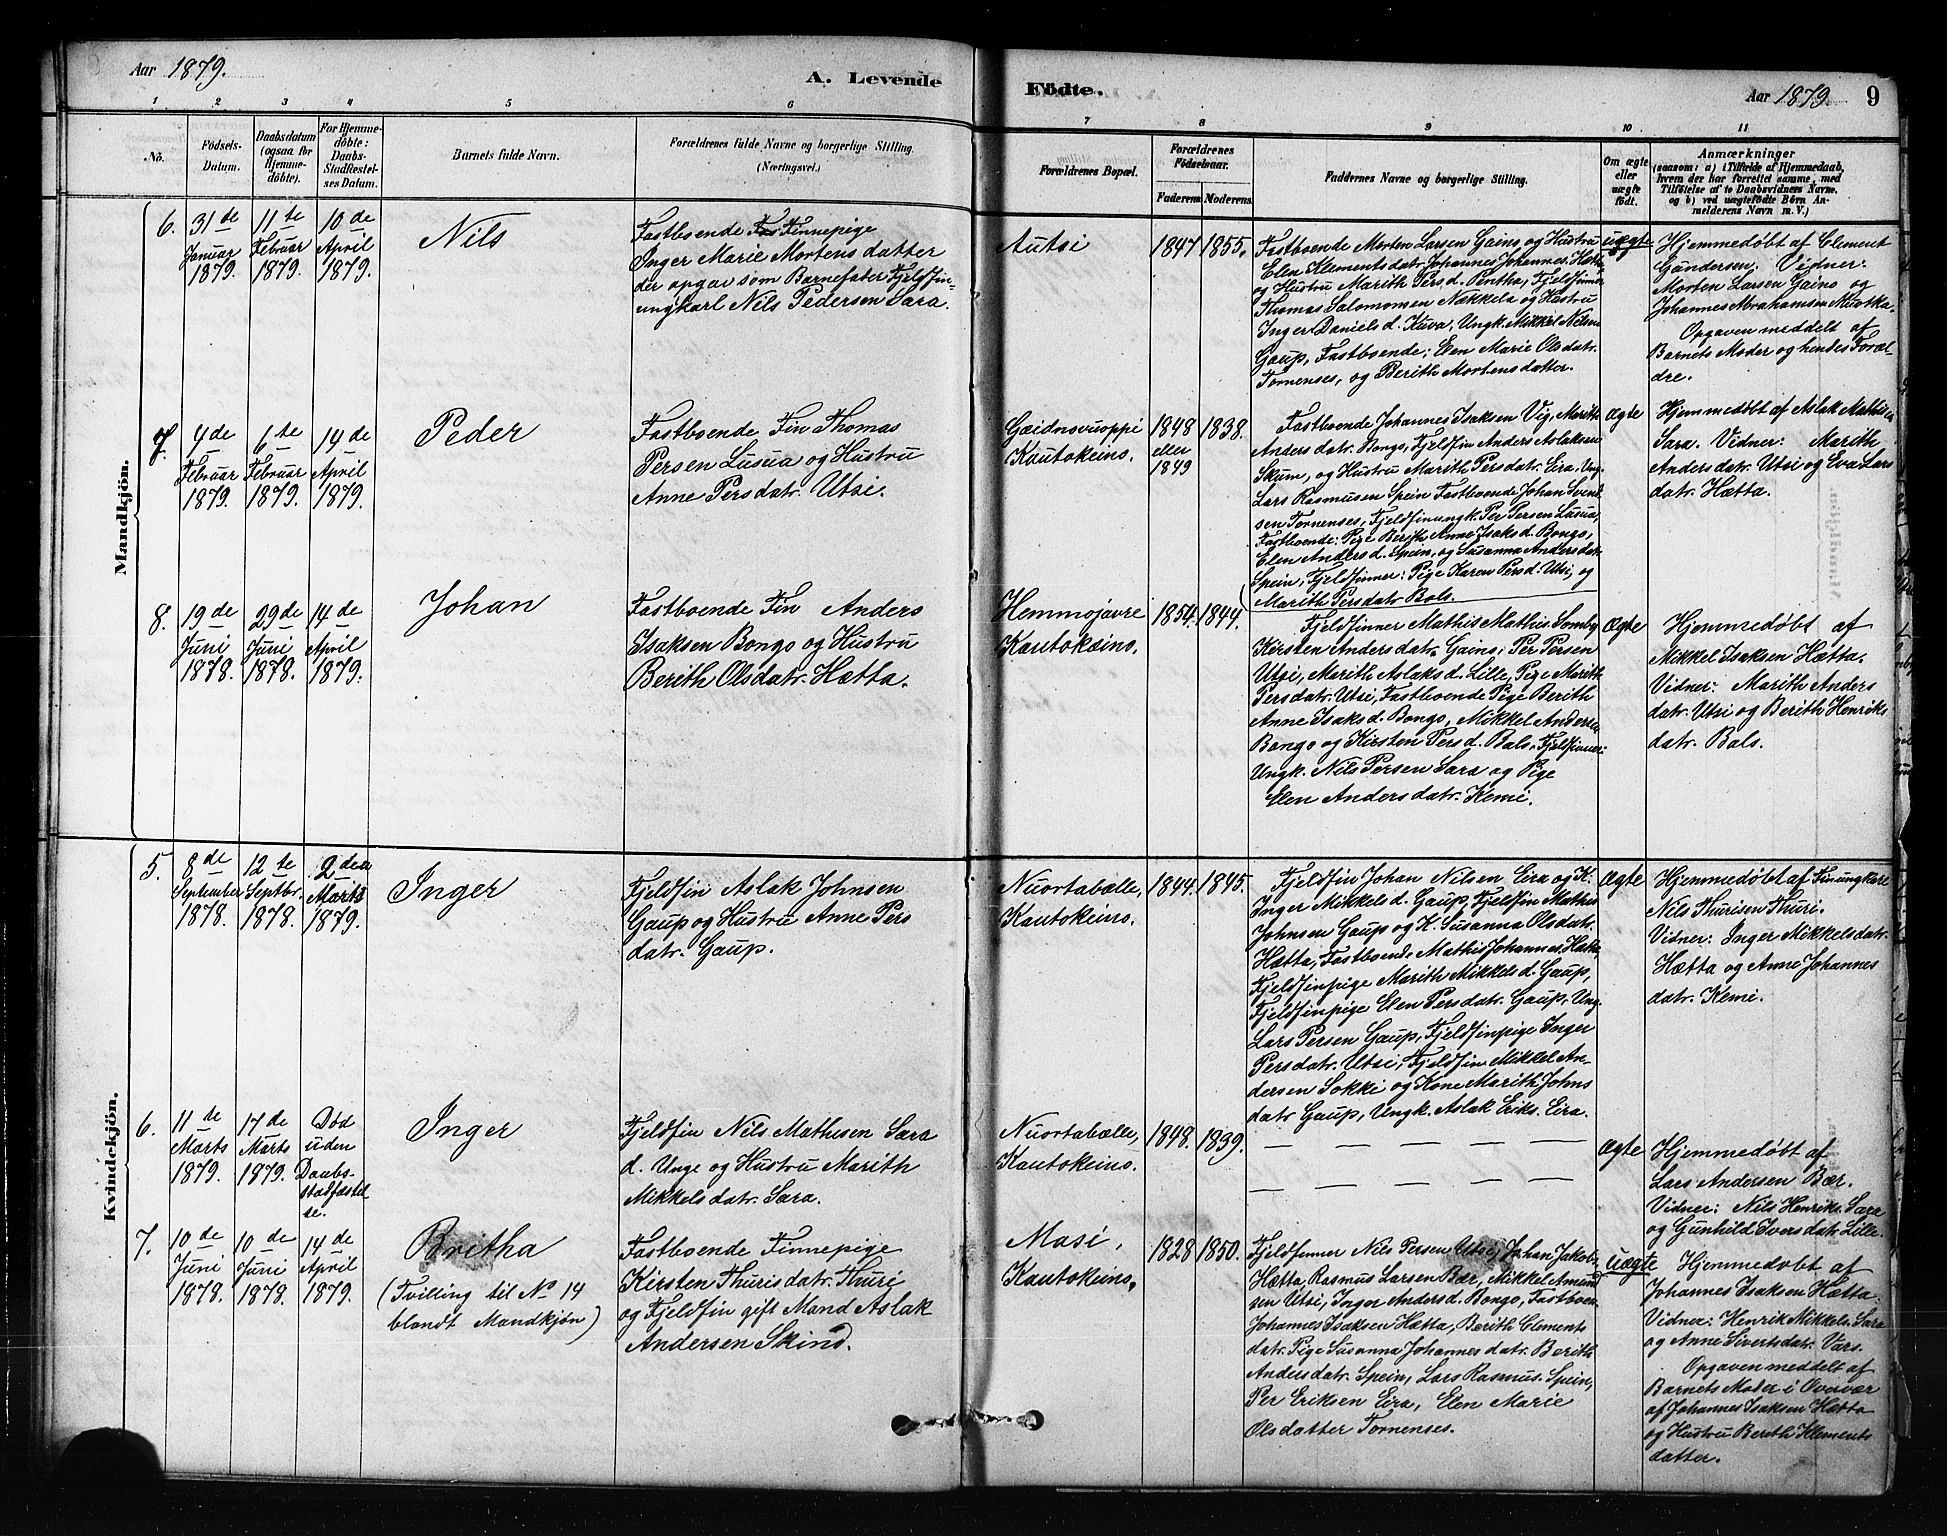 Aar 1879.
A. Levende
Fødte.
Aar 1879.
9
1
2
3
4
5
6
7
8
9
10
11
No.
Fødsels-
Datum.
Daabsdatum
(ogsaa for
Hjemme-
døbte).
For Hjemme-
døbte:
Daabs-
Stadfæstel-
ses Datum.
Barnets fulde Navn.
Forældrenes fulde Navne og borgerlige Stilling.
(Næringsvei.)
Forældrenes Bopæl.
Forældrenes
Fødselsaar.
Faderens
Moderens.
Faddernes Navne og borgerlige Stilling.
Om ægte
eller
uægte
født.
Anmærkninger
(saasom: a) i Tilfælde af Hjemmedaab,
hvem der har forrettet samme, med
Tilføielse af to Daabsvidners Navne,
og b) ved uægtefødte Børn An-
melderens Navn m. V.)
Mandkjön.
6.
31te
Januar
1879.
11te
Februar
1879.
10de
April
1879.
Nils
Fastboende Finnepige
Inger Marie Mortensdatter
der opgav som Barnefater Fjeldfin-
ungkarl Nils Pedersen Sara.
Autsi
1847
1855.
Fastboende Morten Larsen Gaino og Hustru
Elen Klementsdatr. Johannes Johannes. Hætta,
og Hustru Marith Persd. Pentha, Fjeldfinner
Thomas Salomonsen Nækkela og Hustru
Inger Daniels d. Kuva, Ungk. Mikkel Nilsen
Gaup, Fastboende; Elen Marie Olsdatr.
Tornenses, og Berith Mortensdatter.
uægte
Hjemmedøbt af Clement
Gundersen. Vidner:
Morten Larsen Gaino og
Johannes Abrahamsen Muotka.
Opgaven meddelt af
Barnets Moder og hendes Foræl-
dre.
7.
4de
Februar
1879.
6te
Februar
1879.
14de
April
1879.
Peder
Fastboende Fin Thomas
Persen Lusua og Hustru
Anne Persdatr. Utsi.
Gaidnovuoppi
Kautokeino.
1848
eller
1849
1838.
Fastboende Johannes Isaksen Vig, Marith
Andersdatr. Bongo, Fjeldfin Anders Aslaksen
Skum, og Hustru Marith Persdatr. Eira, Ung.
Lars Rasmusen Spein Fastboende Johan Svend-
sen Tornenses, Fjeldfinungk. Per Persen Lusua,
Fastboende: Pige Berith Anne Isaksd. Bongo,
Elen Andersd. Spein, og Susanna Andersdat.
Spein, Fjeldfinner: Pige Karen Persd. Utsi, og
Marith Persdatr Bals.
Ægte
Hjemmedøbt af Aslak Mathisen
Sara. Vidner: Marith
Andersdatr. Utsi og Eva Lars
datr. Hætta.
8.
19de
Juni
1878.
29de
Juni
1878.
14de
April
1879.
Johan
Fastboende Fin Anders
Isaksen Bongo og Hustru
Berith Olsdatr. Hætta.
Hemmojavre
Kautokeino.
1854.
1844.
Fjeldfinner Mathis Mathis Somby
Kirsten Andersdatr. Gaino, Per Persen
Utsi, Marith Aslaks d. Lille, Pige Marith
Persdatr. Utsi, Fastboende Pige Berith
Anne Isaks d. Bongo, Mikkel Andersen
Bongo og Kirsten Persd. Bals. Fjeldfinner:
Ungk. Nils Persen Sara og Pige
Elen Andersdatr. Kemi.
Ægte
Hjemmedøbt af
Mikkel Isaksen Hætta.
Vidner: Marith Anders
datr. Utsi og Berith Henriks
datr. Bals.
Kvindekjön.
5.
8de
September
1878.
12te
Septbr.
1878.
2den
Marts
1879.
Inger
Fjeldfin Aslak Johnsen
Gaup og Hustru Anne Pers
datr. Gaup.
Nuortabælle,
Kautokeino.
1844.
1845.
Fjeldfin Johan Nilsen Eira og K.
Inger Mikkels d. Gaup, Fjeldfin Mathis
Johnsen Gaup og K. Susanna Olsdatr.
Hætta, Fastboende Mathis Johannes. Hætta,
Fjeldfinpige Marith Mikkels d. Gaup,
Fjeldfinpige Elen Persdatr. Gaup. Ung.
Lars Persen Gaup, Fjeldfinpige Inger
Persdatr. Utsi, Fjeldfin Mikkel An-
dersen Sokki og Kone Marith Johns
datr Gaup, Ungk. Aslak Eriks. Eira.
Ægte
Hjemmedøbt af Finungkarl
Nils Thurisen Thuri.
Vidner: Inger Mikkelsdatr.
Hætta og Anne Johannes
datr. Kemi.
6.
11de
Marts
1879.
17de
Marts
1879.
Død
uden
Daabs-
stadfæstel
se.
Inger
Fjeldfin Nils Mathesen Sara
d. Unge og Hustru Marith
Mikkelsdatr. Sara.
Nuortabælle,
Kautokeino.
1848.
1839.
— — — — —
— — — — —
Ægte
Hjemmedøbt af
Lars Andersen Bær.
Vidner: Nils Henriks. Sara
og Gunhild Iversdatr. Lille.
7.
10de
Juni
1878.
10de
Juni
1878.
14de
April
1879.
Britha
(Tvilling til No 14
blandt Mandkjøn)
Fastboende Finnepige
Kirsten Thurisdatr. Thuri
og Fjeldfin gift Mand Aslak
Andersen Skind.
Masi,
Kautokeino,
1828
1850.
Fjeldfinner Nils Persen Utsi, Johan Jakobs.
Hætta, Rasmus Larsen Bær, Mikkel Amund
sen Utsi, Inger Andersd. Bongo, Fastboen.
Johannes Isaksen Hætta, Berith Clements
datr. Pige Susanna Johannes datr. Berith
Andersdatr. Spein, Lars Rasmus. Spein,
Per Eriksen Eira, Elen Marie
Olsdatter Tornenses.
uægte
Hjemmedøbt af
Johannes Isaksen Hætta.
Vidner: Henrik Mikkels. Sara
og Anne Sivertsdatr. Vars.
Opgaven meddelt af
Barnets Moder i Overvær
af Johannes Isaksen Hætta
og Hustru Berith Klements
datter.